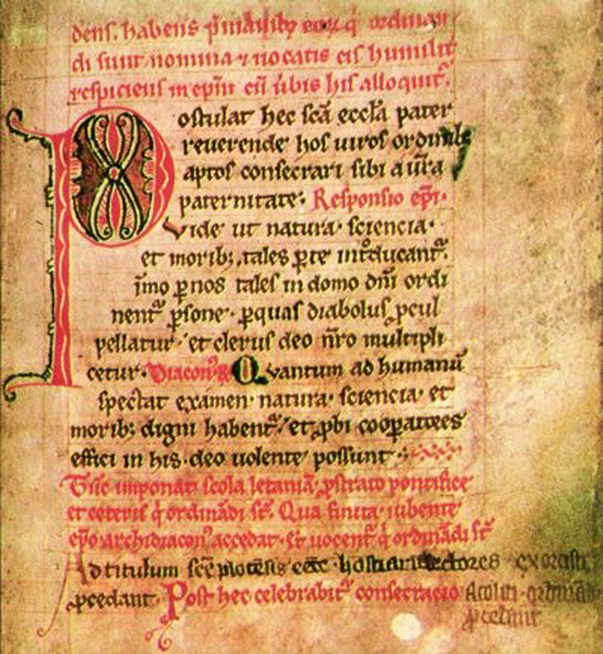 dens. habens p̄ manib; eoꝝ q̇ ordinan
di sunt nomina ⁊ uocatis eis humilit̄
respiciens in ep̄m cū ūbis his alloquit᷑.
Postulat hec sc̄a eccl̄a pater
reuerende hos uiros ordinib;
aptos consecrari sibi a ūr̄a
paternitate. Responsio ep̄i.
Vide ut natura. sciencia.
et morib; tales ꝑ te int̊ducant᷑.
īmo ꝑ nos tales in domo dn̄i ordi
nent᷑ ꝑsone. ꝑ quas diabolus ꝓcul
pellatur. et clerus deo nr̄o multipli
cetur. Diacon⁹ Quantum ad humanū
spectat examen. natura. sciencia. et
morib; digni habent᷑. et ꝓbi cooꝑatores
effici in his. deo uolente possunt.
Tūc imponat scola letaniā. ꝓstrato pontifice
et ceteris q̇ ordinādi st̄. Qua finita. iubente
ep̄o archidiacon⁹ accedat. et uocent᷑ q̇ ordinādi st̄
Ad titulum sc̄e hostiarii lectores exorciste
ꝓcedant. Post hec celebrabit᷑ consecracio Acoliti. ordinandi
ꝓcedant